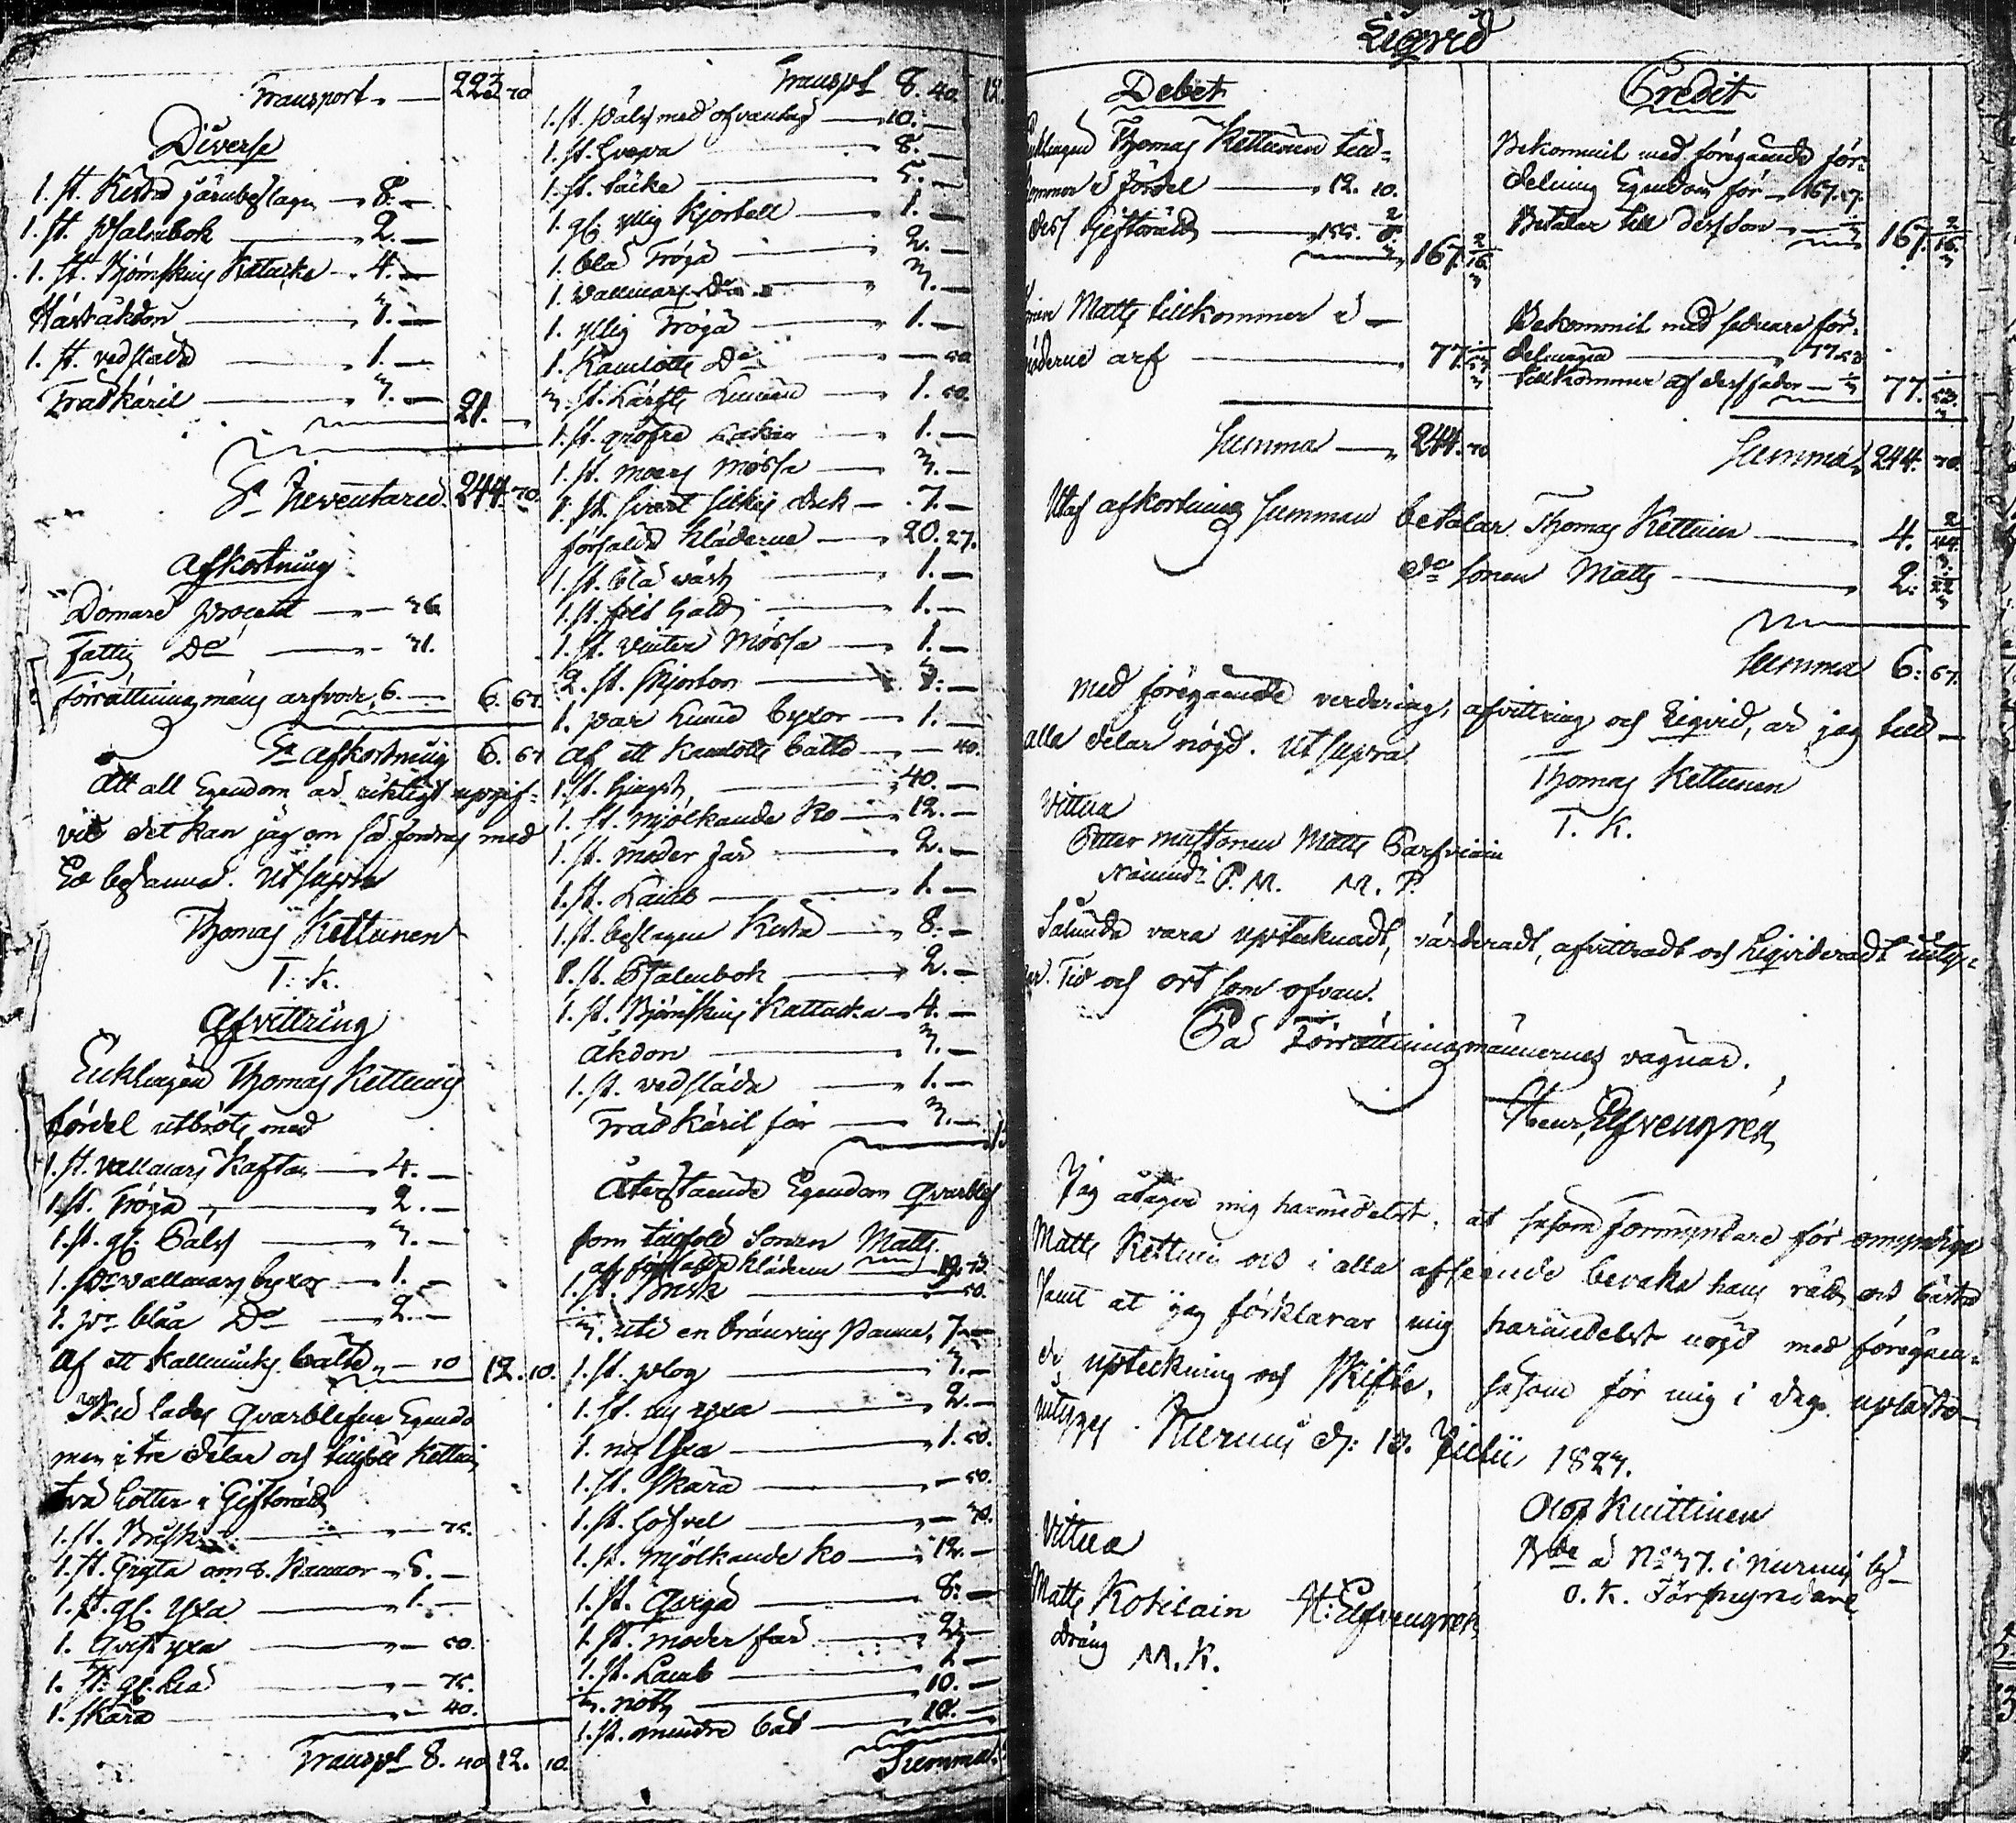 Transport 223 70
Diverse
1. st. Kista järnbeslagen 8. —
1. st. Psalmbok 2. —
1. st. Björnskins Kattacka 4. —
Häståkdon 3. —
1. st. vedslada 1. —
Trädkäril 3. — 21. —
Sa Inventared. 244. 70.
Afkortning
Domare procent — 36
Fattig Do — 31.
förrättningsmäns arfvode, 6. — 6. 67.
Sa Afkortning 6. 67
Att all Egendom är riktigt uppgif-
vit det kan jag om så fordras med
Ed besanna. Ut supra
Thomas Kettunen
T. K.
Afvittring
Enklingen Thomas Kettuins
fördel utbröts med
1. st. vallmars Kaftan 4. —
1. st. Tröja 2. —
1. st. gl. Päls 3. —
1. pr vallmars byxor 1. —
1. pr blåa Do 2. —
af ett Kallminks bälte — 10 12. 10.
Sed lades qvarblefne Egendo
men i tre delar och tillföll Kettuin
två lotter i Giftorätt
1. st. Brisk — 75.
1. st. Gryta om 8. Kannor 5. —
1. st. gl. Yxa 1. —
1. Qvist yxa — 50.
1. st. gl. lia — 75.
1. skära — 40.
Transpt 8. 40 12. 10.
Transpt 8. 40. 12.
1. st. päls med ofvantyg 10. —
1. st. 8. —
1. st. täcke 5. —
1. gl. yllig kjortell 1. —
1. blå Tröja 2. —
1. vallmars Do 3. —
1. yllig Tröja 1. —
1. Kamlotts Do — 50
3. st. Lärfts Linnen 1. 50.
1. st. gröfre Lakan 1. —
1. st. moars mössa 3. —
1. st. svart silkes duk 7. —
försålda kläderne 20. 27.
1. st. blå väst 1. —
1. st. filt hatt 1. —
1. st. vinter mössa 1. —
2. st. skjortor 3. —
1. par Linne byxor 1. —
Af ett kamlotts bälte — 40.
1. st. hingst 40. —
1. st. mjölkande ko 12. —
1. st. moder får 2. —
1. st. Lamb 1. —
1. st. beslagen Kista 8. —
1. st. Psalmbok 2. —
1. st. Björnskins Kattacka 4. —
åkdon 3. —
1. st. vedsläda 1. —
Trädkäril för 3. —
Återstående Egendom qvarblef
som tillföll Sonen Matts.
af försålda kläderne 12. 73
1. st. Brisk — 50.
3. uti en bränvins Panna 7. —
1. st. plog 3. —
1. st. ny yxa 2. —
1. ny lia 1. 50.
1. st. skära — 50.
1. st. höfvel — 30.
1. st. mjölkande ko 12. —
1. st. qviga 8. —
1. st. moder får 2. —
1. st. Lamb 1. —
3. nott 10. —
1. st. mindre båt 10. —
Summa
Liqvid
Debet Credit
Enklingen Thomas Kettunen till-
kommer i fördel 12. 10.
dess Giftorätt 155. 6 2/3 167. 16 2/3
Sonen Matts tillkommer i —
möderne arf 77. 53 1/3
Summa 244. 70
Bekommit med föregående för-
delning Egendom för 167. 17.
Betalar till dess son 1/3 167. 16 2/3
Bekommit med sednare för-
delningen 77. 53
tillkommer af dess fader 1/3 77. 53 1/3
Summa 244. 70.
Utaf afkortning summan betalar Thomas Kettuin 4. 44 2/3
do sonen Matts 2. 22 1/3
Summa 6. 67.
Med föregående verdering, afvittring och Liqvid, är jag till
alla delar nögd. Ut supra
Thomas Kettunen
T. K.
Vittna
Petter Mustonen Matts Parfviain
Nämnd: P. M. M. P.
Sålunda vara upteknadt, värderadt, afvittradt och Liqvideradt betyg-
ar. Tid och ort som ofvan.
På Förrättningsmännernes vägnar.
Henr. Elfvengren
Jag åtager mig härmedelst, at såsom Förmyndare för omyndige
Matts Kettuin och i alla afseende bevaka hans rätt och bästa
samt at jag förklarar mig härmedelst nögd med föregåen-
de upteckning och Skifte, såsom för mig i dag upläste
betygas. Nurmis d: 13. Julii 1827.
Olof Kuittinen
Bde å No 37. i Nurmis by
O. K. Förmyndare
Vittna
Matts Kokilain H: Elfvengren
Dräng M. K.